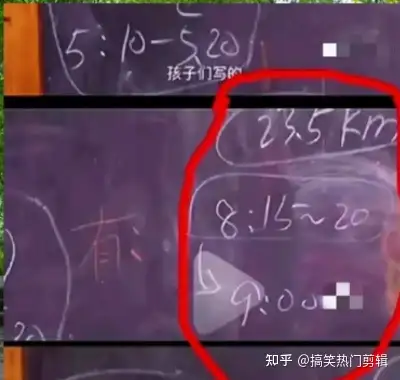 5:10-5.20
孩子们写的
23.5 Km
8:15~20
有:
9:00
20
知乎 @搞笑热门剪辑